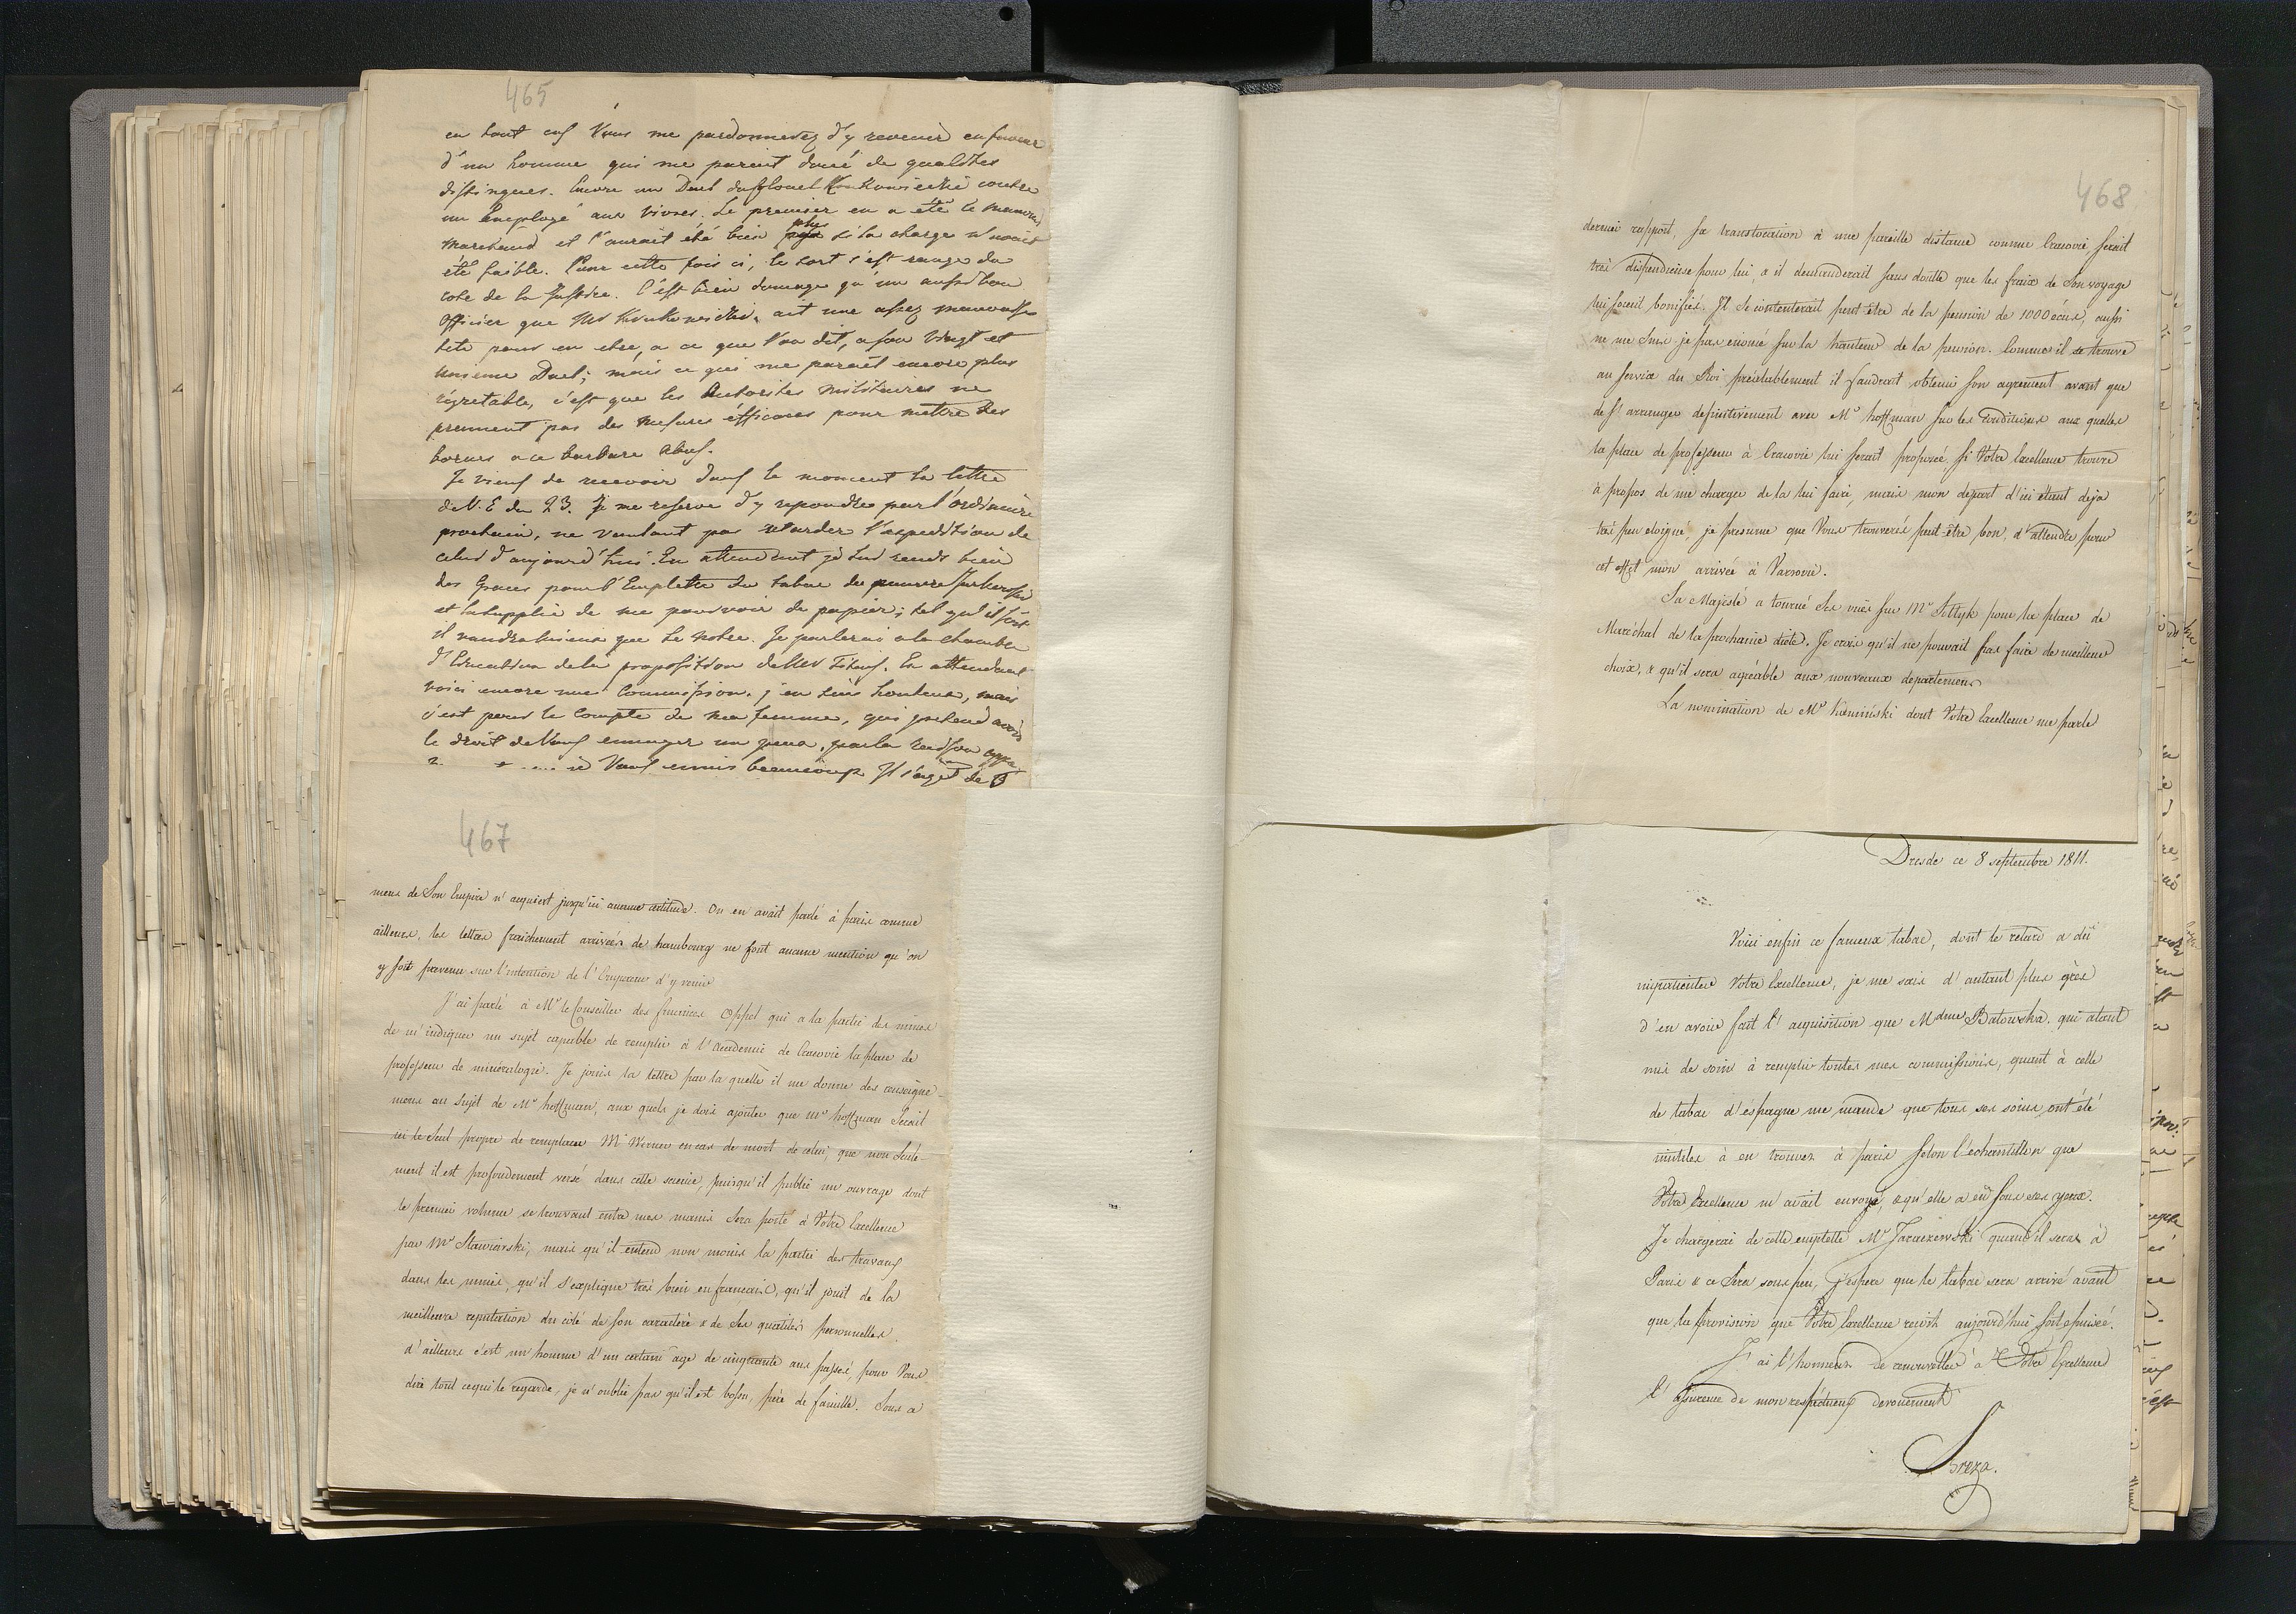 465
en tout cas Vous me pardonnerez d'y revenir en faveur
d'un homme qui me parait doué de qualités
distingués. Encore un Duel du Colonel Krukowiecki contre
un Employé aux vivres. Le premier en a été le mauvais
marchand et l'aurait été bien plus si la charge n'avait
été faible. Pour cette fois ci, le sort s'est rangé du
coté de la Justice. C'est bien domage qu'un aussi bon
officier que Mr Krukowiecki, ait une assez mauvaise
tete pour en etre, a ce que l'on dit, a son Vingt et
unieme Duel; mais ce qui me parait encore plus
régretable, c'est que les Autorites militaires ne
prennent pas des mesures éfficaces pour mettre des
bornes a ce barbare abus.
Je viens de recevoir dans le moment la lettre
de V. E du 23. Je me reserve d'y repondre par l'ordinaire
prochain, ne voulant pas retarder l'expedition de
celui d'aujourd'hui. En attendant je Lui rends bien
des Graces pour l'Emplette du tabac de
et la supplie de me pourvoir de papier; tel qu'il soit
il vaudra mieux que le notre. Je parlerai a la chambre
d'Education de la proposition de Mr . En attendant
voici encore une Commission. j'en suis honteux, mais
c'est pour le Compte de ma femme, qui pretend avoir
le droit de Vous ennuyer un peu, par la raison
Vous ennuie beaucoup. Il s'agit de
467
mens de Son Empire n'acquiert jusqu'ici aucune certitude. On en avait parlé à paris comme
ailleurs, les lettres fraichement arrivées de hambourg ne font aucune mention qu'on
y soit prevenu sur l'intention de l'Empereur d'y venir
J'ai parlé à Mr le Conseiller des finances Oppel qui a la partie des mines
de m'indiquer un sujet capable de remplir à l'Academie de Cracovie la place de
professeur de minéralogie. Je joins la lettre par la quelle il me donne des renseigne-
mens au sujet de Mr hoffman, aux quels je dois ajouter que Mr hoffman serait
ici le seul propre de remplacer Mr Werner en cas de mort de celui, que non seule-
ment il est profondement versé dans cette science, puisqu'il publie un ouvrage dont
le premier volume se trouvant entre mes mains sera porté à Votre Excellence
par Mr Stawiarski, mais qu'il entend non moins la partie des travaux
dans les mines, qu'il s'explique très bien en francais, qu'il jouit de la
meilleure reputation du coté de son caractère & de ses qualités personnelles.
d'ailleurs c'est un homme d'un certain age de cinquante ans passés, pour Vous
dire tout ce qui le regarde, je n'oublie pas qu'il est , père de famille. Sous ce
468
dernier rapport, sa translocation à une pareille distance comme Cracovie serait
très dispendieuse pour lui, & il demanderait sans doute que les fraix de Son voyage
lui soient bonifiés. Il se contenterait peut être de la pension de 1000 écus, aussi
ne me suis-je pas enoncé sur la hauteur de la pension. Comme il se trouve
au service du Roi préalablement il faudrait obtenir son agrement avant que
de s'arranger definitivement avec Mr hoffman sur les Conditions aux quelles
la place de professeur à Cracovie lui serait proposée. Si Votre Excellence trouve
à propos de me charger de la lui faire, mais mon depart d'ici étant deja
très peu eloigné, je presume que Vous trouverés peut-être bon, d'attendre pour
cet effet mon arrivée à Varsovie.
Sa Majesté a tourné Ses vües sur Mr Soltyk pour la place de
Maréchal de la prochaine diète. Je crois qu'il ne pouvait pas faire de meilleur
choix, & qu'il sera agréable aux nouveaux departemens
La nomination de Mr Kaminski dont Votre Excellence me parle
Dresde ce 8 septembre 1811.
Voici enfin ce fameux tabac, dont le retard a dû
impatienter Votre Excellence, je me sais d'autant plus grès
d'en avoir fait l'acquisition que Mdme Batowska. qui a tant
mis de soin à remplir toutes mes commissions, quant à celle
de tabac d'éspagne me mande que tous ses soins ont été
inutiles à en trouver à paris selon l'échantillon que
Votre Excellence m'avait envoyé, & qu'elle a eû sous ses yeux.
Je chargerai de cette emplette Mr Jaraczewski quand il sera à
Paris & ce Sera sous peu, j'espere que le tabac sera arrivé avant
que la provision que Votre Excellence reçoit aujourd'hui soit epuisée.
J'ai l'honneur de renouveller à Votre Excellence
l'assurence de mon respectueux devouement
Breza.